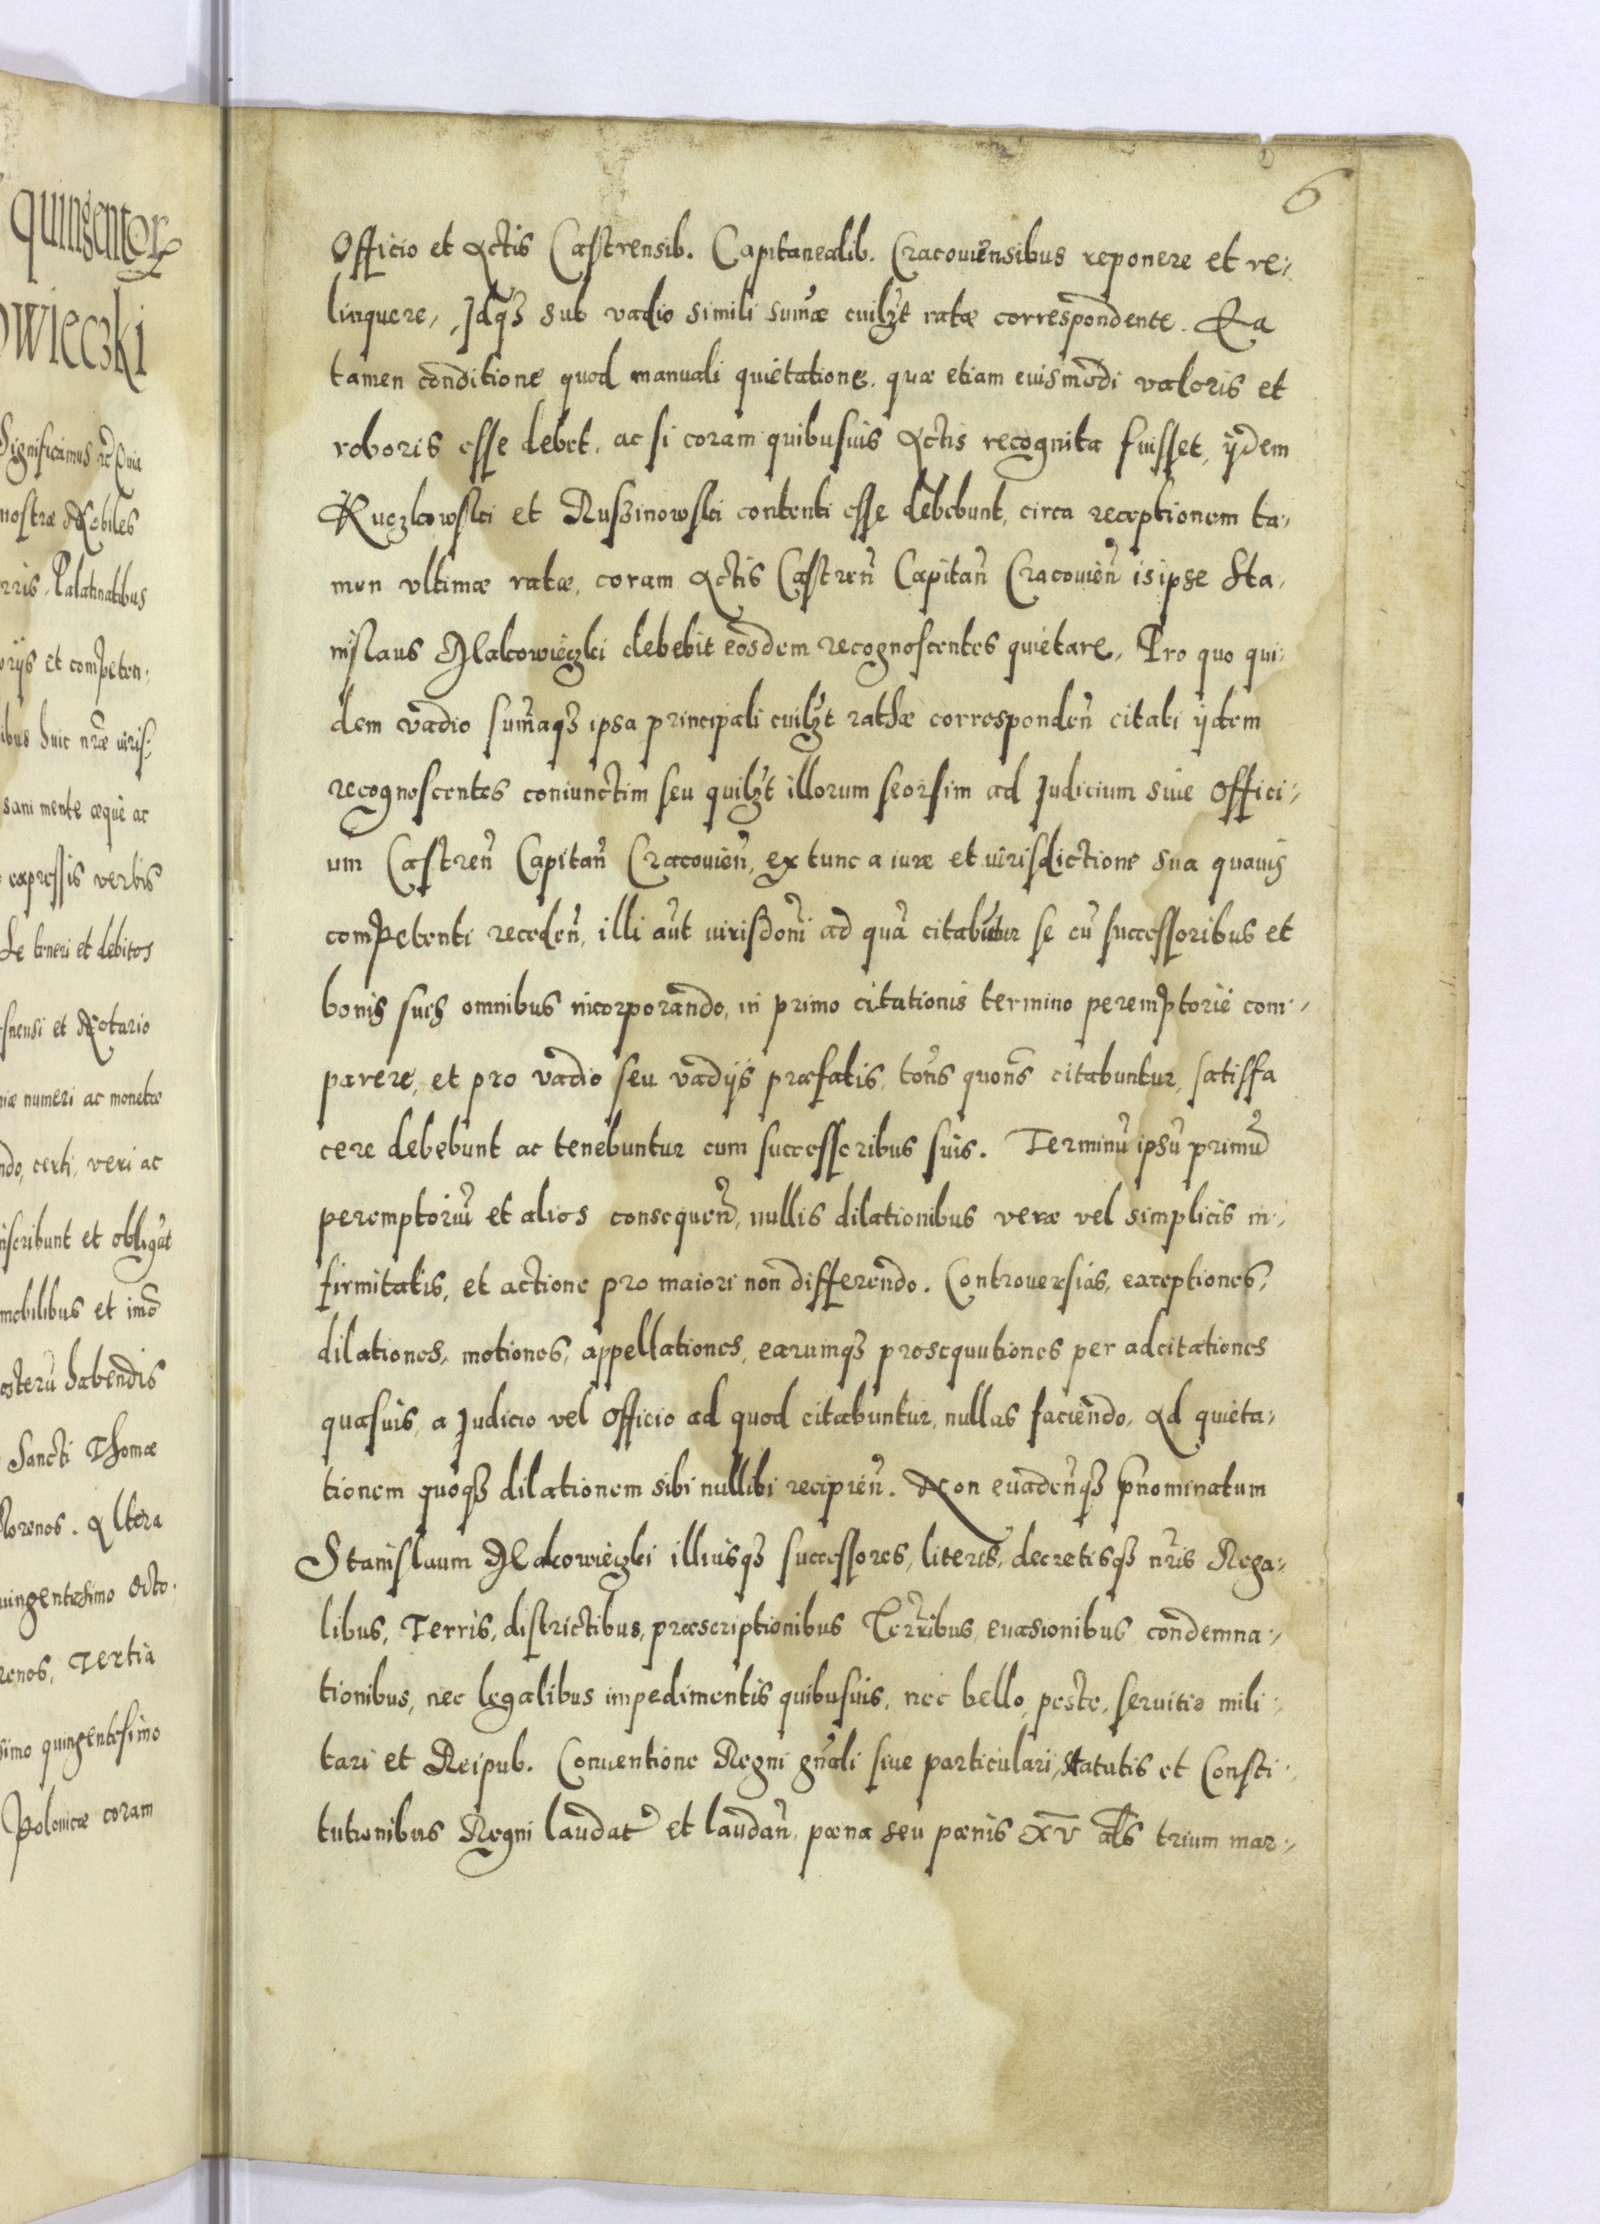 quingentor
owieczki
Significamus
nostræ Nobiles
rris, Palatinatibus
oriis et competen,
ibus huic nræ
sani mente æque ac
expressis verbis
se teneri et debitos
snensi et Notario
niæ numeri ac monetæ
ndo, certi, veri ac
inscribunt et obligāt
mobilibus et imō
posterū habendis
Sancti Thomæ
florenos. Altera
quingentesimo octo,
renos, Tertia
simo quingentesimo
Polonicæ coram
6
Officio et Actis Castrensib. Capitanealib. Cracouiensibus reponere et re,,
linquere, Idqȝ sub vadio simili sum̃æ cuilȝt ratæ correspondente. Ea
tamen conditione quod manuali quietatione, quæ etiam euismodi valoris et
roboris esse debet, ac si coram quibusuis Actis recognita fuisset, ijdem
Ruczkowski et Russinowski contenti esse debebunt, circa receptionem ta,
men vltimæ ratæ, coram Actis Castreñ Capitañ Cracouieñ is ipse Sta,
nislaus Makowieczki debebit eosdem recognoscentes quietare, Pro quo qui,
dem vadio sum̃aqȝ ipsa principali cuilȝt rathæ correspondeñ citati ijdem
recognoscentes coniunctim seu quilȝt illorum seorsim ad Iudicium siue Offici,,
um Castreñ Capitañ Cracouieñ, ex tunc a iure et iurisdictione sua quauis
competenti recedeñ, illi aūt iurisdoñi ad quā citabuntur se cū successoribus et
bonis suis omnibus incorporando, in primo citationis termino peremptorie com,,
parere, et pro vadio seu vadijs præfatis, toñs quoñs citabuntur, satisfa
cere debebunt ac tenebuntur cum successoribus suis. Terminū ipsū primū
peremptoriū et alios consequeñ, nullis dilationibus veræ vel simplicis in,
firmitatis, et actione pro maiori non differendo. Controuersias, exceptiones,
dilationes, motiones, appellationes, earumqȝ prosequutiones per adcitationes
quasuis, a Iudicio vel Officio ad quod citabuntur, nullas faciendo, Ad quieta,
tionem quoqȝ dilationem sibi nullibi recipieñ. Non euadeñqȝ p̃nominatum
Stanislaum Makowieczki illiusqȝ successores, literis, decretisqȝ nr̃is Rega,
libus, Terris, districtibus, præscriptionibus Terr̃ibus, euasionibus condemna,,
tionibus, nec legalibus impedimentis quibusuis, nec bello, peste, seruitio mili,
tari et Reipub. Conuentione Regni gñali siue particulari, statutis et Consti,,
tutionibus Regni laudat̃ et laudañ, pœna seu pœnis XV als trium mar,,